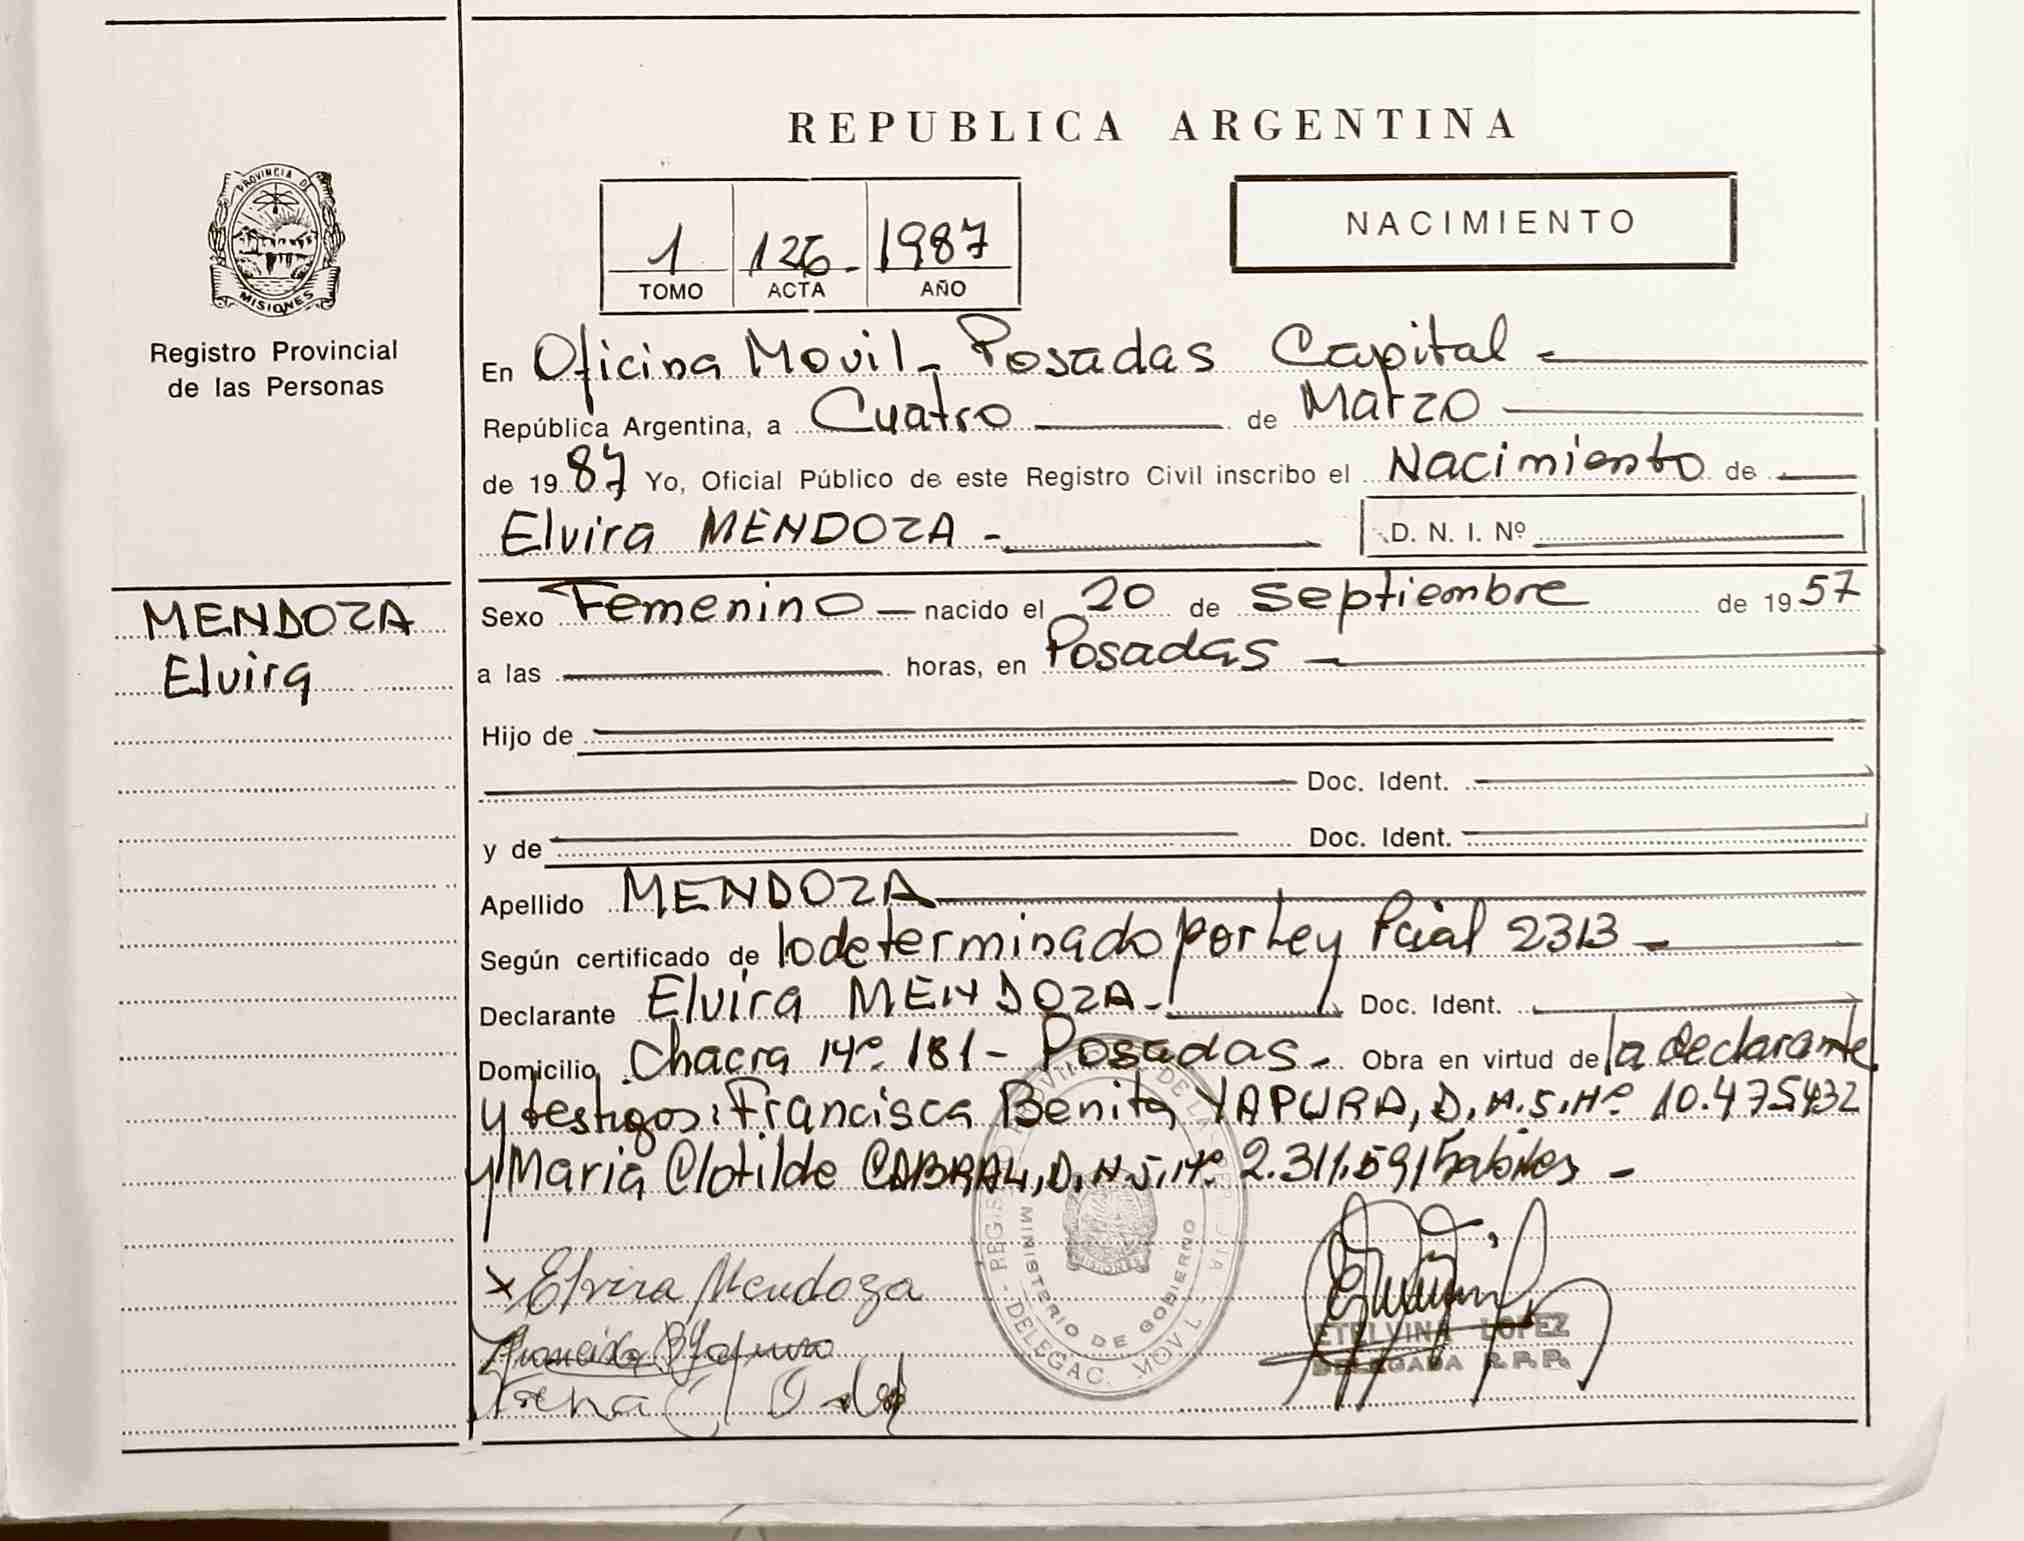 REPUBLICA ARGENTINA
PROVINCIA D
MISIONES
Registro Provincial
de las Personas
1 126- 1987
TOMO ACTA AÑO
NACIMIENTO
En Oficina Movil- Posadas Capital -
República Argentina, a Cuatro de Marzo
de 19 87 Yo, Oficial Público de este Registro Civil inscribo el Nacimiento de
Elvira MENDOZA - D. N. I. Nº
MENDOZA
Elvira
Sexo Femenino nacido el 20 de Septiembre de 19 57
a las horas, en Posadas
Hijo de
Doc. Ident.
y de Doc. Ident.
Apellido MENDOZA
Según certificado de lo determinado por Ley Pcial 2313 -
Declarante Elvira MENDOZA- Doc. Ident.
Domicilio Chacra Nº 181- Posadas- Obra en virtud de la declarante
y testigos: Francisca Benita YAPURA, D.N.I. Nº 10.475432
y Maria Clotilde CABRAL, D.N.I. Nº 2.311.591 habiles -
x Elvira Mendoza
MINISTERIO DE GOBIERNO
DELEGAC. MOVIL
ETELVINA LOPEZ
DELEGADA R.P.P.